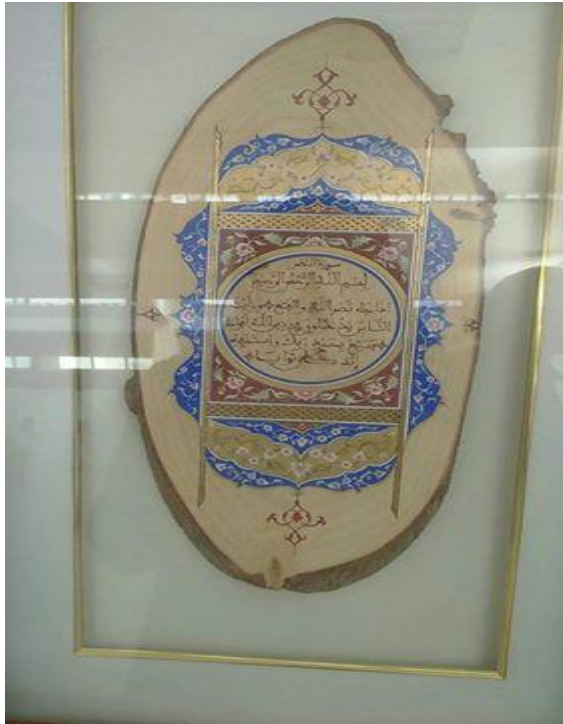 سورة النصر
بسم الله الرحمن الرحيم
اذا جاء نصر الله والفتح ورايت
الناس يدخلون في دين الله افواجا
فسبح بحمد ربك واستغفره
انه كان توابا